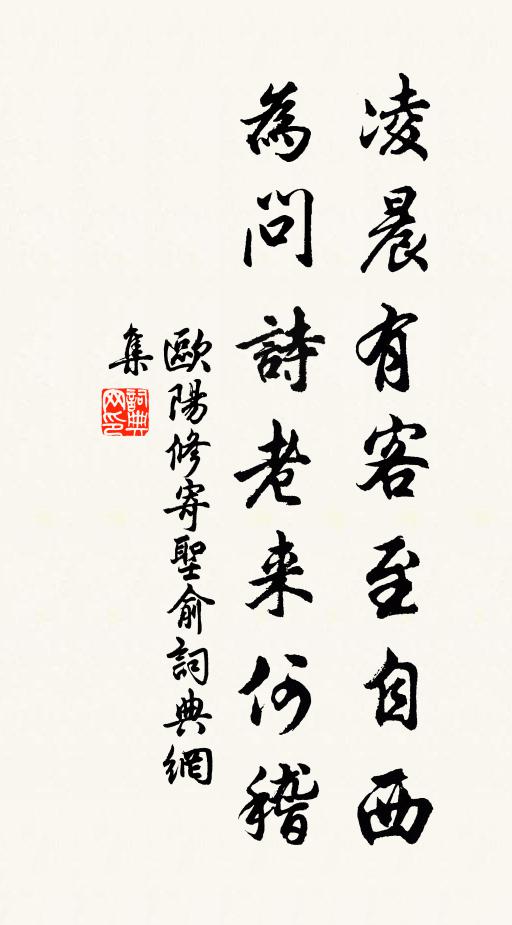 凌晨有客至自西
為問詩老来何稽
歐陽修寄聖俞詞典網
集
詞典网印